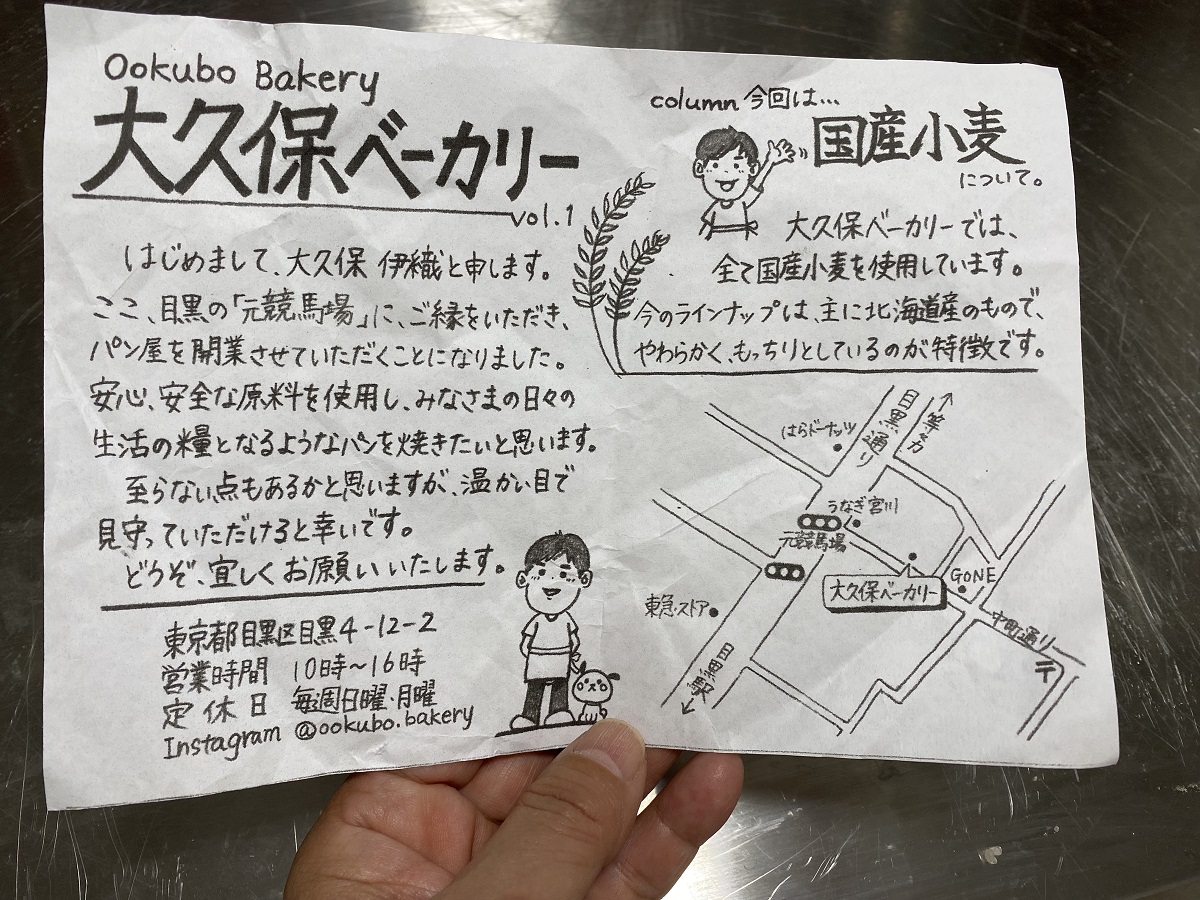 Ookubo Bakery
大久保ベーカリー
vol.1
はじめまして、大久保 伊織と申します。
ここ、目黒の「元競馬場」に、ご縁をいただき、
パン屋を開業させていただくことになりました。
安心、安全な原料を使用し、みなさまの日々の
生活の糧となるようなパンを焼きたいと思います。
至らない点もあるかと思いますが、温かい目で
見守っていただけると幸いです。
どうぞ、宜しくお願いいたします。
東京都目黒区目黒4-12-2
営業時間 10時〜16時
定休日 毎週日曜・月曜
Instagram @ookubo.bakery
column 今回は…
国産小麦
について。
大久保ベーカリーでは、
全て国産小麦を使用しています。
今のラインナップは、主に北海道産のもので、
やわらかく、もっちりとしているのが特徴です。
目黒通り
等々力
はらドーナッツ
うなぎ宮川
元競馬場
大久保ベーカリー
GONE
東急・ストア
中町通り
〒
目黒駅